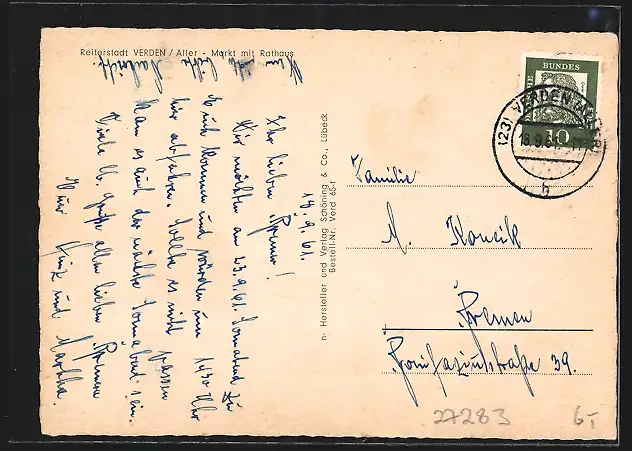 Reiterstadt VERDEN / Aller - Markt mit Rathaus
18.9.61.
Ihr lieben Bremer!
Wir möchten am 23.9.61. Sonnabend, zu
Euch kommen und würden um 14 30 Uhr
hier abfahren. Sollte es nicht passen
kann es auch der nächste Sonnabend sein.
Viele Grüße allen lieben Bremern
Eure Heinz und Martha.
n- Hersteller und Verlag Schöning & Co., Lübeck
Bestell-Nr. Verd 65-1
BUNDES
10
(23) VERDEN (ALLER)
18.9.61
b
Familie
A. Konzik
Bremen
Bonifaziusstraße 39.
27283
6,-